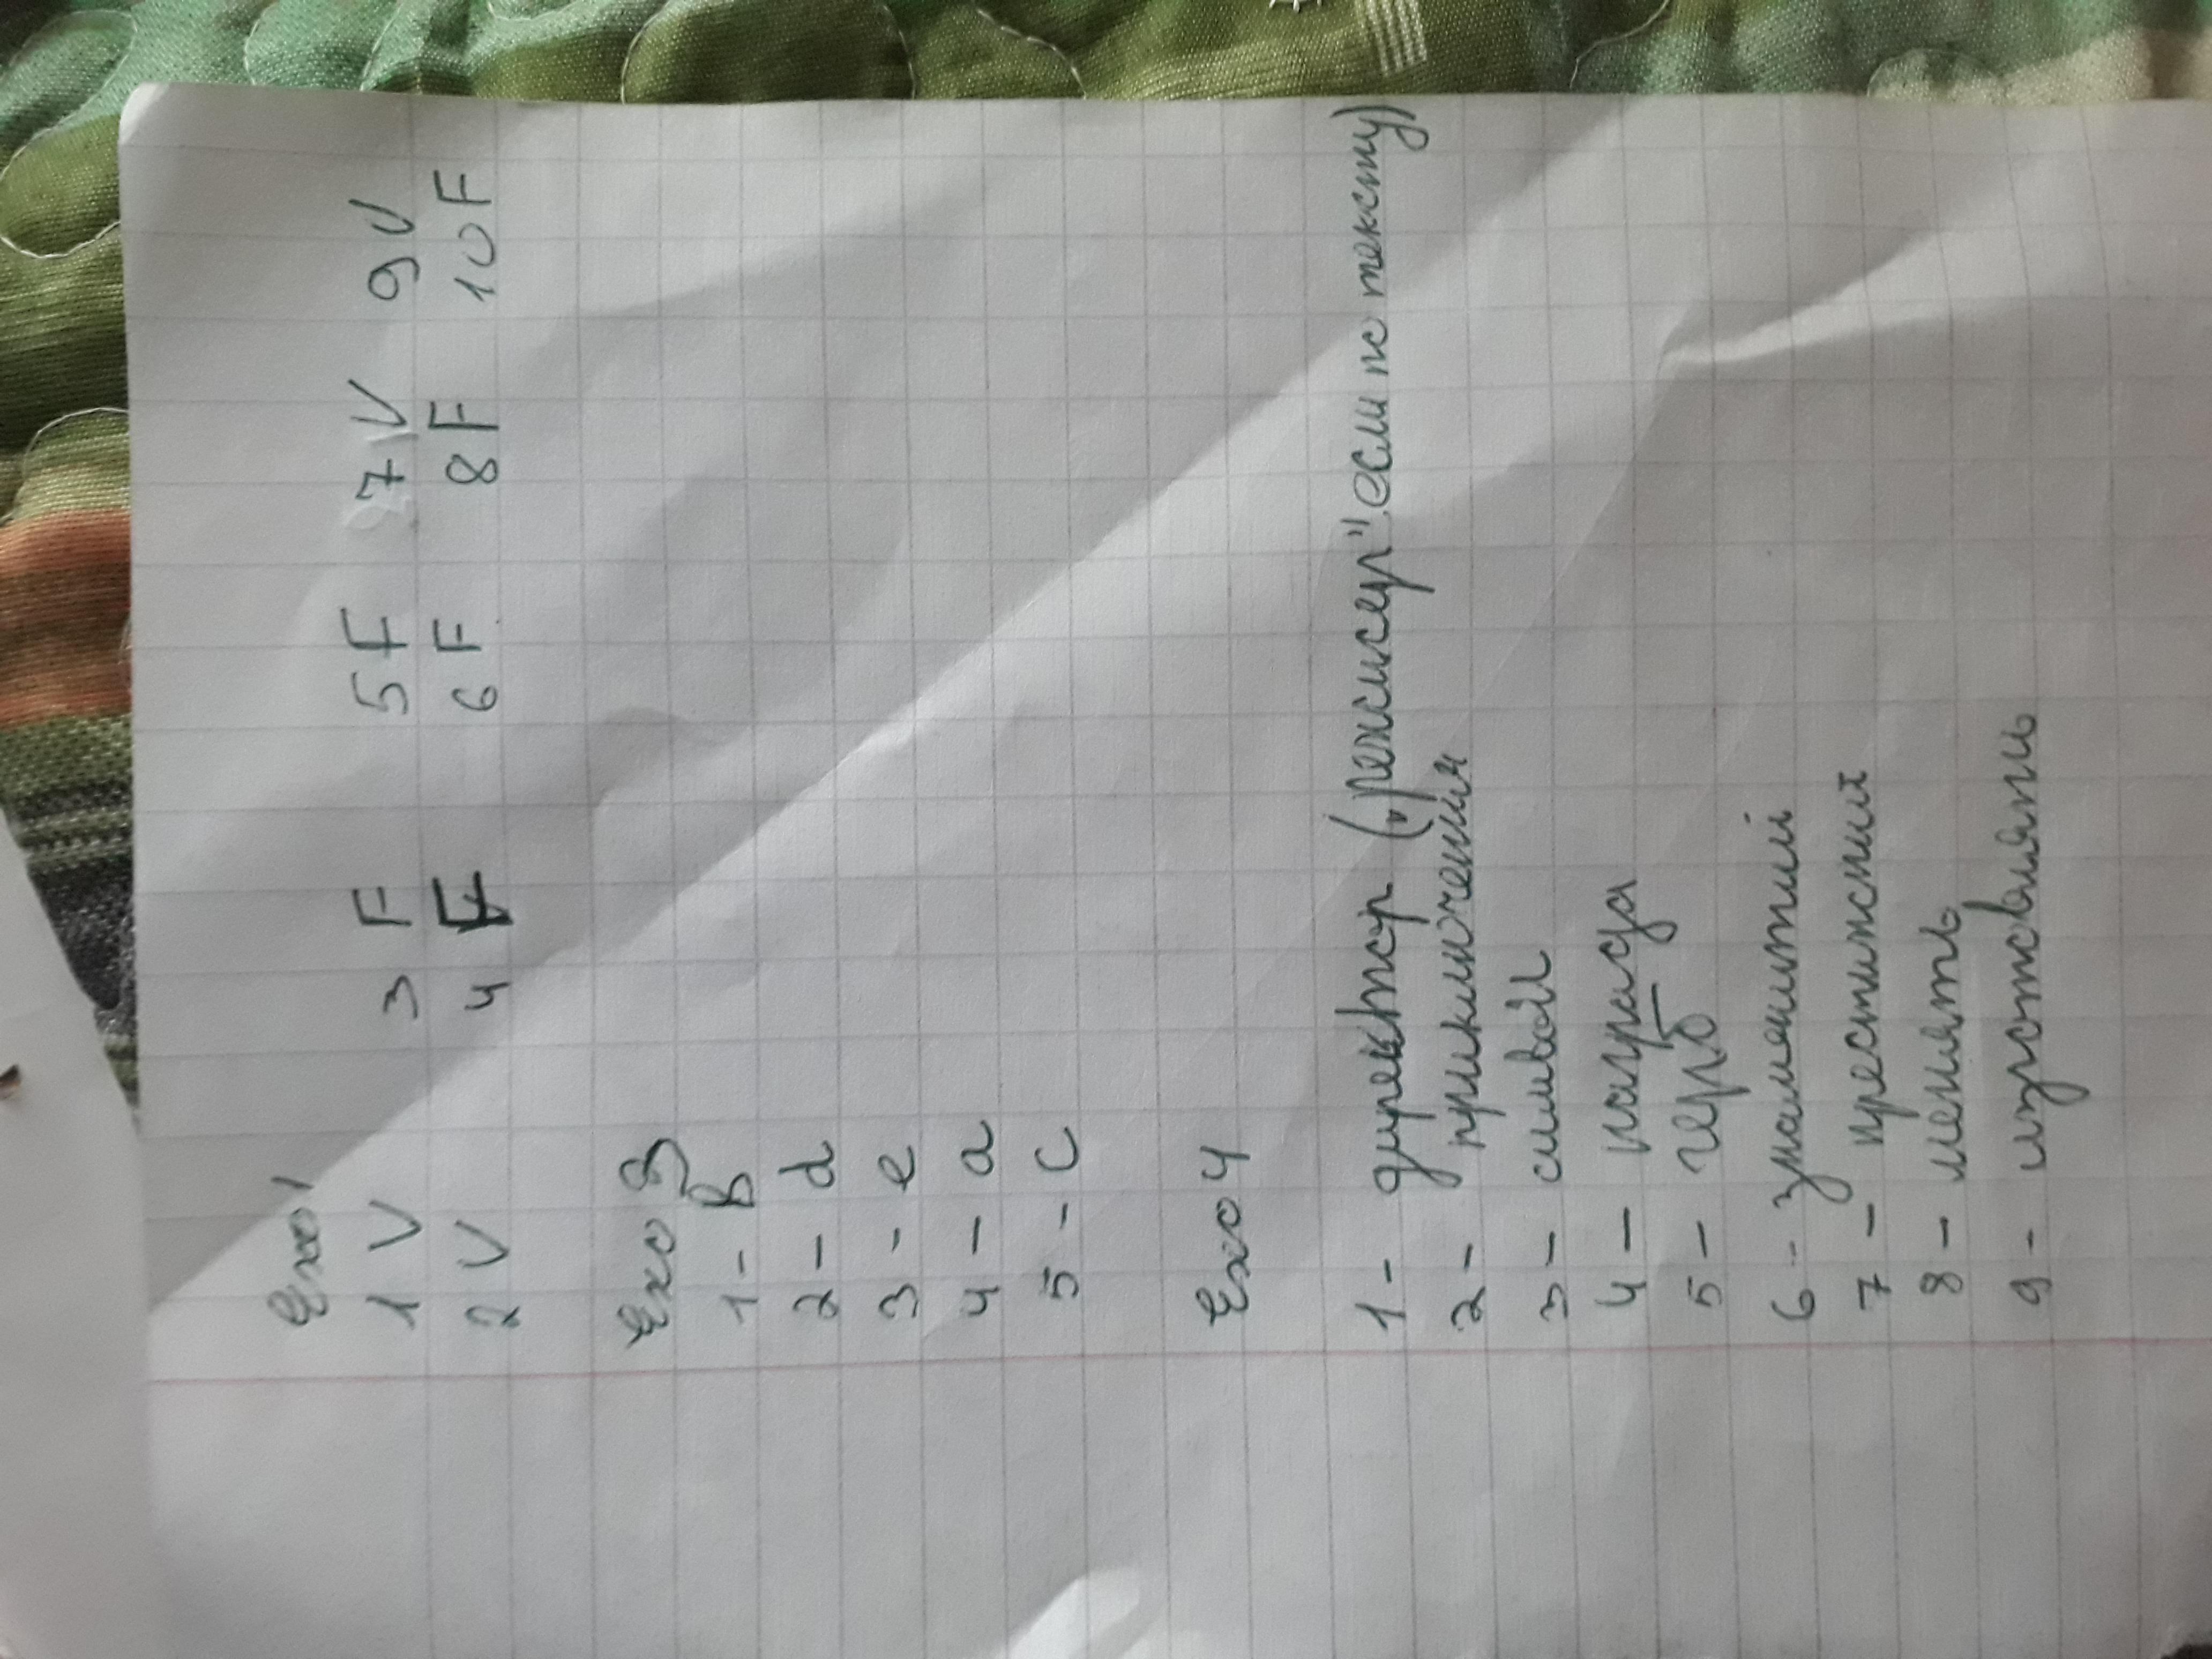 Exo 1
1 V 3 F 5 F 7 V 9 V
2 V 4 F 6 F 8 F 10 F
Exo 3
1 - B
2 - d
3 - e
4 - a
5 - c
Exo 4
1 - директор („режисер" если по тексту)
2 - приключения
3 - символ
4 - награда
5 - герб
6 - знаменитый
7 - престижний
8 - менять
9 - изготовлять